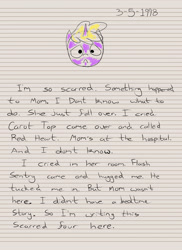 3-5-1998
Im so scarred. Something happened
to Mom. I Dont know what to
do. She just fall over. I cried.
Carot Top come over and called
Red Heart. Mom's at the hospital.
And I dont know.
I cried in her room Flash
Sentry came and hugged me. He
tucked me in. But mom wasnt
here. I didnt have a bedtime
Story. So Im writing this
Scarred four here.